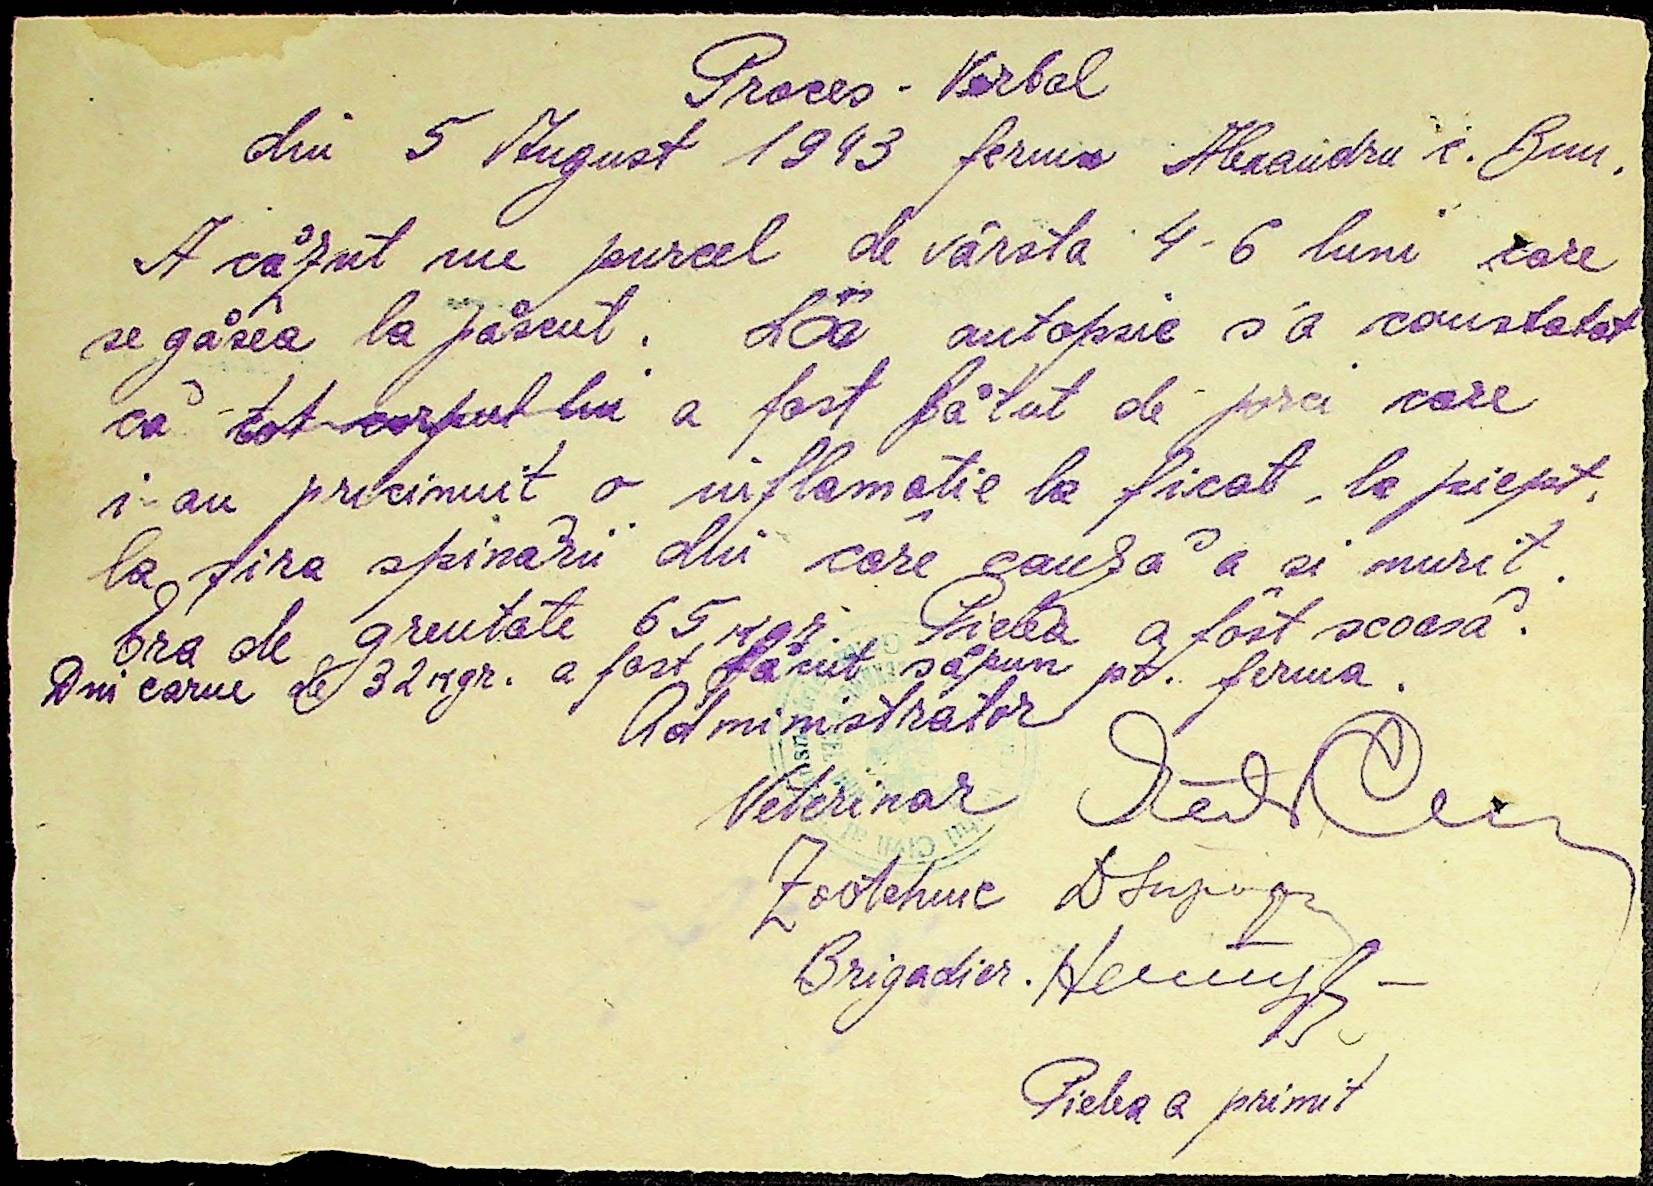 Proces-Verbal
din 5 August 1943 ferma Alexandru c. Bun.
A căzut un purcel de vârsta 4-6 luni care
se găsea la păscut. La autopsie s'a constatat
că tot corpul lui a fost bătut de porci care
i-au pricinuit o inflamatie la ficat, la piept,
la sira spinării din care cauză a si murit.
Era de greutate 65 kgr. Pielea a fost scoasă.
Din carne de 32 kgr. a fost făcut săpun pt. ferma.
Administrator
Veterinar
Zootehnic
Brigadier.
Pielea a primit